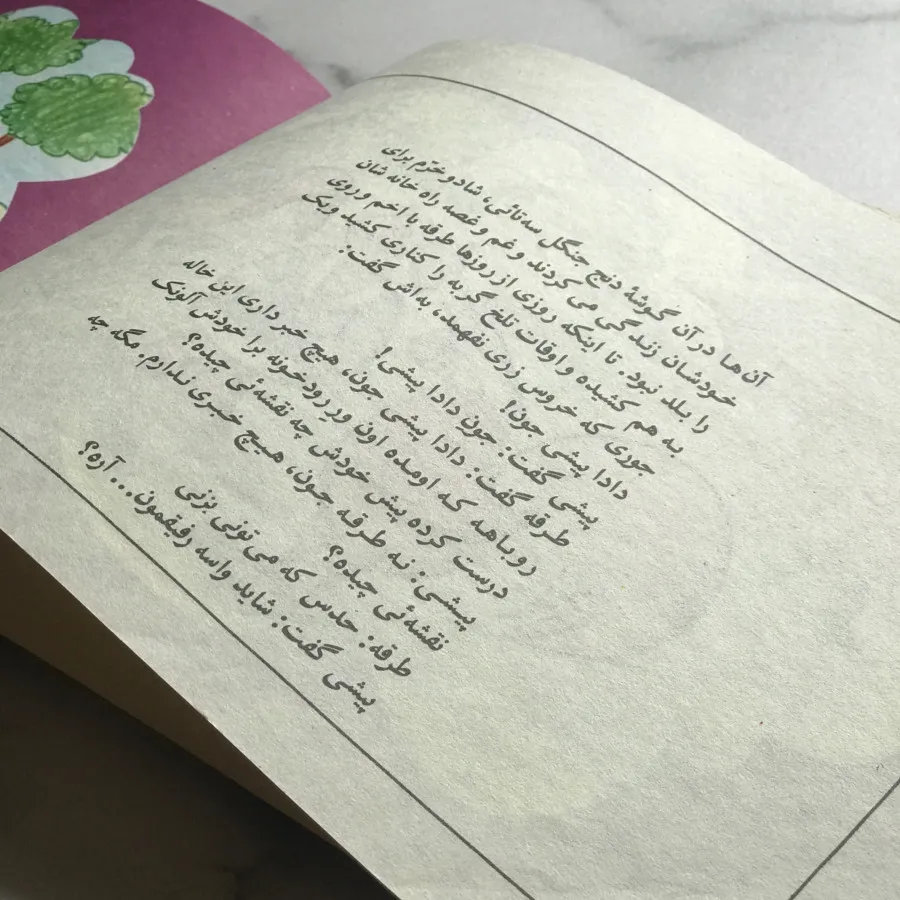 آن‌ها در آن گوشهٔ دنج جنگل سه‌تائی، شاد و خرّم برای
خودشان زندگی می‌کردند و غم و غصه راه خانه‌شان
را بلد نبود. تا اینکه روزی از روزها طرقه با اخم و روی
به هم کشیده و اوقات تلخ گربه را کناری کشید و یک
جوری که خروس زری نفهمد، به‌اش گفت:
دادا پیشی جون!
پیشی گفت: جون دادا پیشی!
طرقه گفت: دادا پیشی جون، هیچ خبر داری این خاله
روباهه که اومده اون ورِ رودخونه برا خودش آلونک
درست کرده پیش خودش چه نقشه‌ئی چیده؟
پیشی: نه طرقه جون، هیچ خبری ندارم. مگه چه
نقشه‌ئی چیده؟
طرقه: حدس که می‌تونی بزنی
پیشی گفت: شاید واسه رفیقمون... آره؟